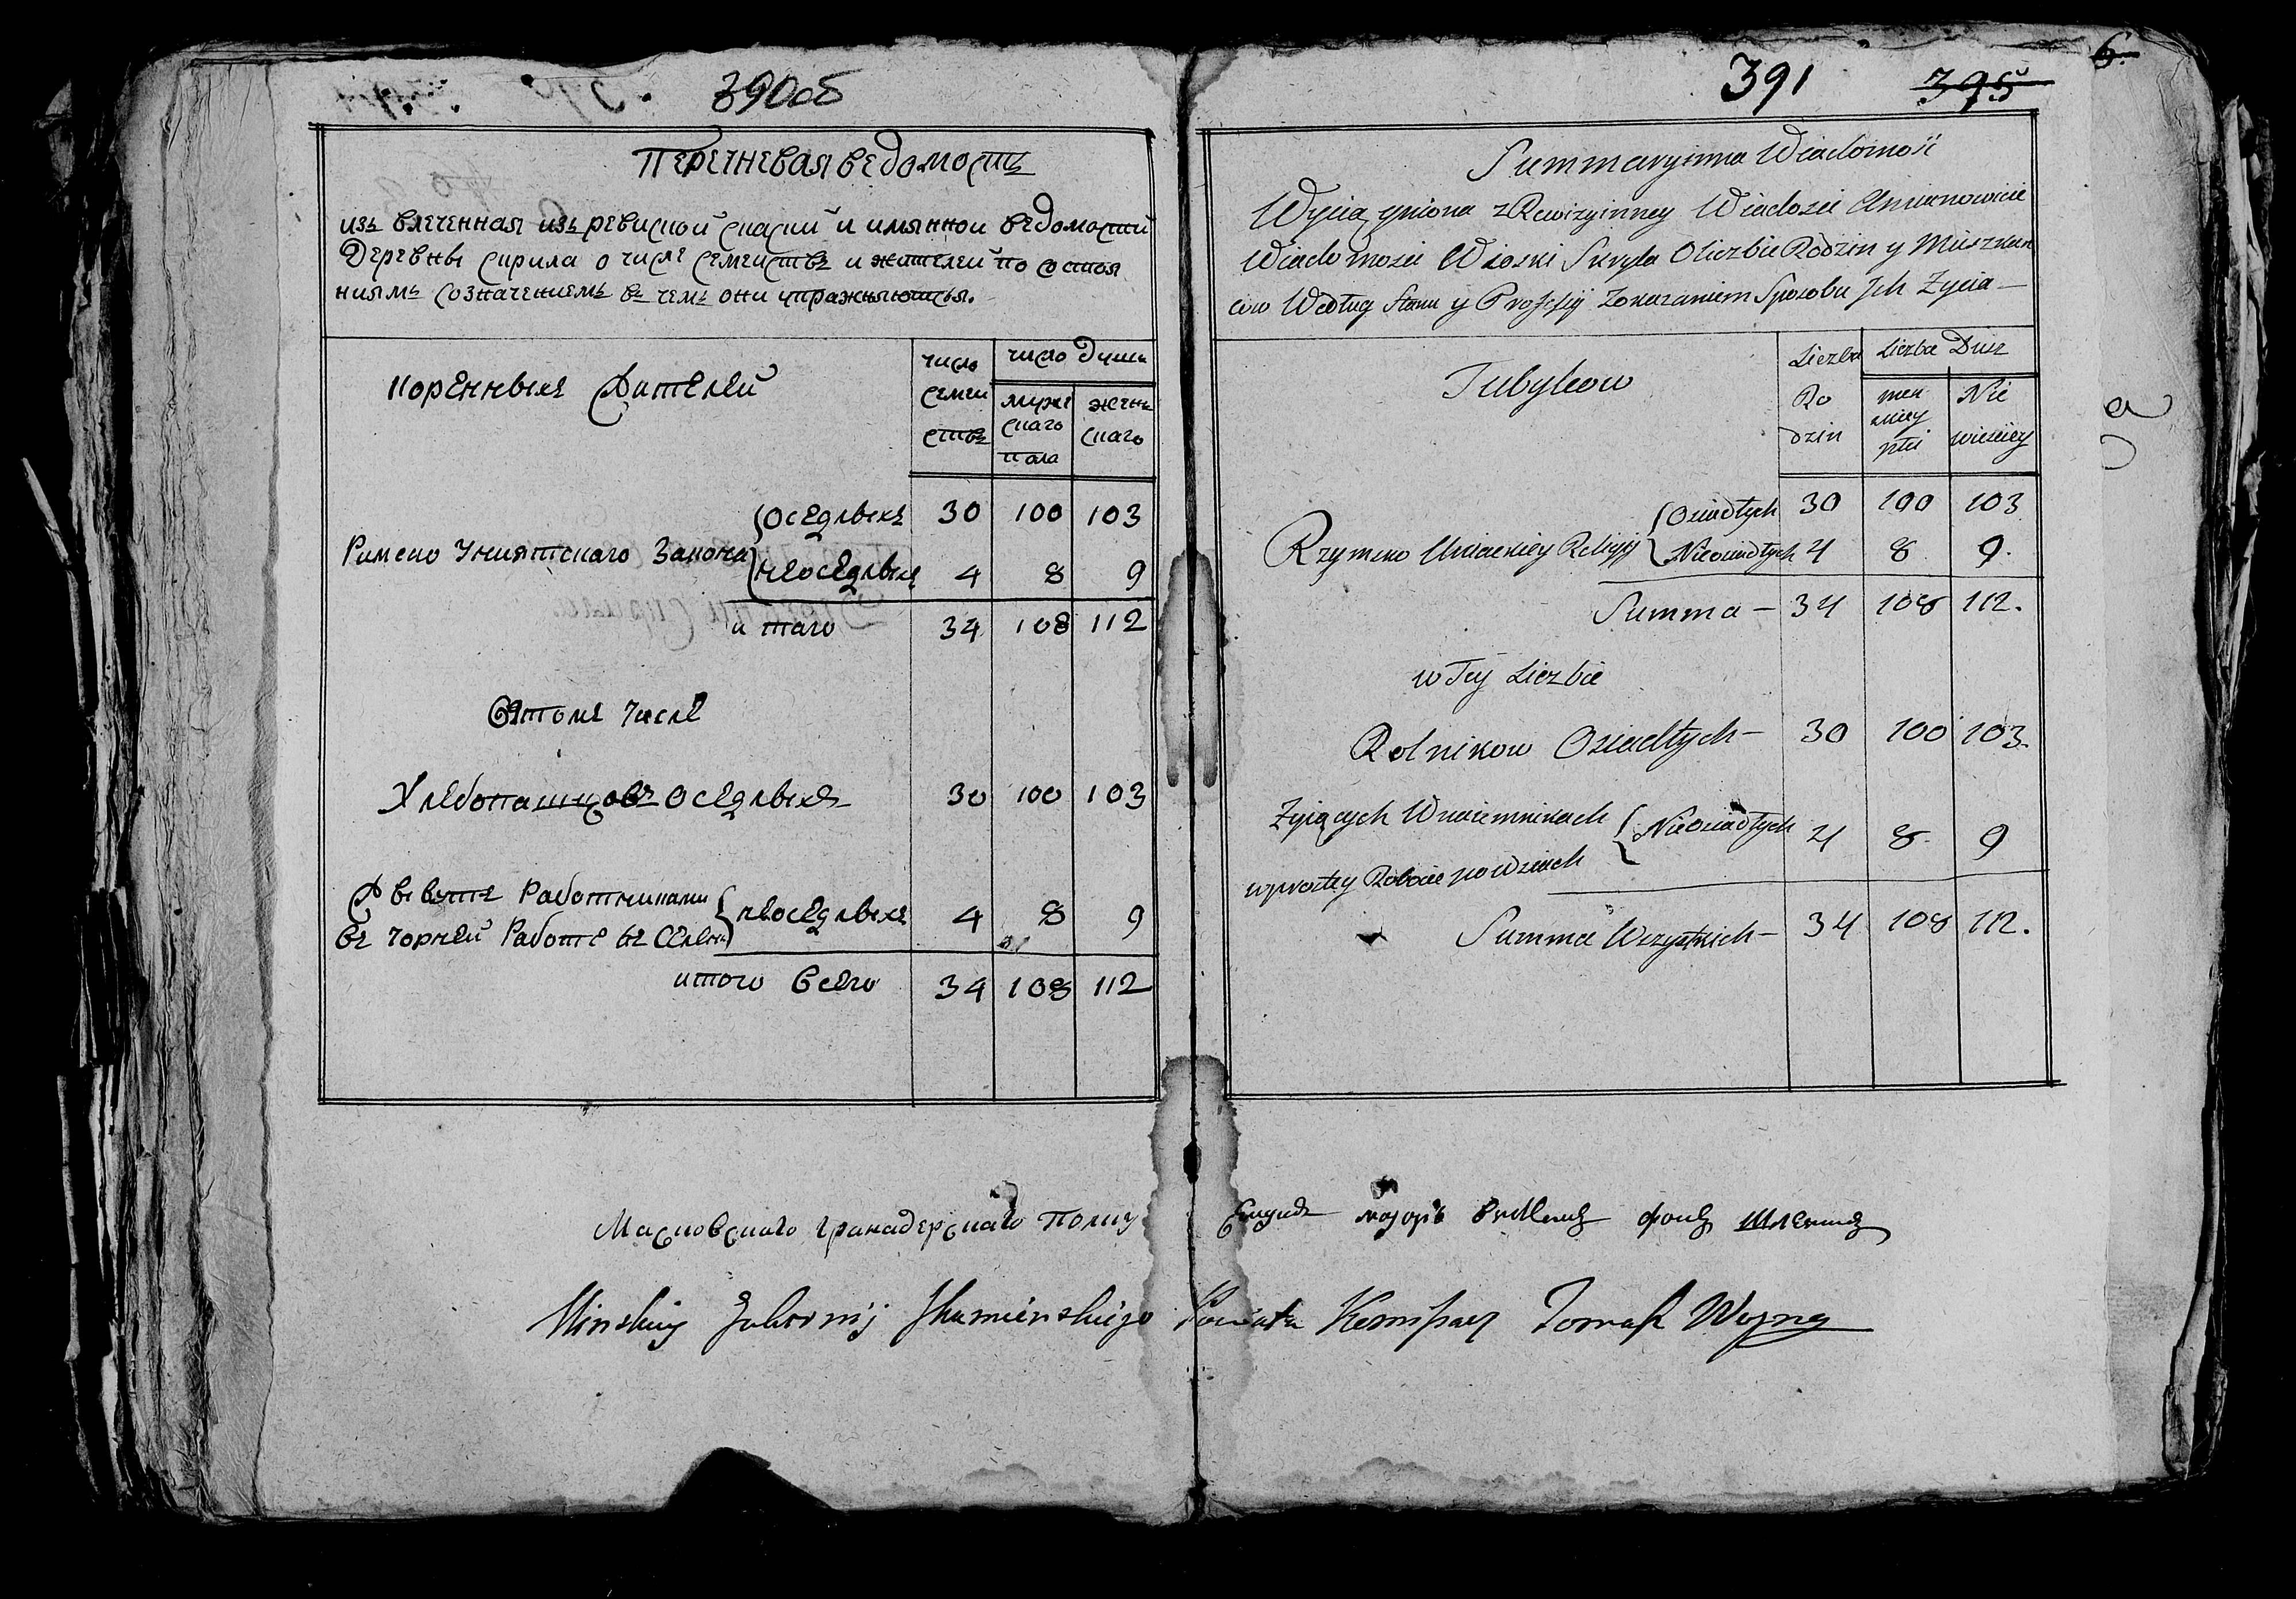 390об
Перечневая ведомость
изъ влеченная изъ ревиской скаски и имянной ведомости
Деревны скрила о числе семействъ и жителей по состоя
ниямъ созначениемъ въ чемъ они упражняютьсы.
коренныхъ жителей
число семей ствъ
число душъ
мужескаго пола
женскаго
Римско Униятскаго Закона { оседлыхъ 30 100 103
неоседлыхъ 4 8 9
и таго 34 108 112
Втомъ числе
Хлебопашцовъ оседлыхъ 30 100 103
Живутъ Работниками
въ чорней Работе въ Селени { неоседлыхъ 4 8 9
итого всего 34 108 112
391 395
6.
Summaryinna Wiadomość
Wyciągniona z Rewizyinney Wiadosci Amianowicie
Wiadomosci Wioski Skryla O liczbie Rodzin y Mieszkan
cow Według Stanu y Professyi zokazaniem Sposobu Ich Zycia
Tubylcow
Liczba Ro dzin
Liczba Dusz
men skiey płci
Nie wiesciey
Rzymsko Uniackiey Religyi { Osiadłych 30 100 103
Nieosiadłych 4 8 9.
Summa – 34 108 112.
w Tey Liczbie
Rolnikow Osiadłych – 30 100 103.
Zyiących Wnaiemnikach
wprostey Robocie po Wsiach { Nieosiadłych 4 8 9
Summa Wszystkich – 34 108 112.
Масковскаго гранадерскаго Полку Секундъ маиоръ фонъ
Minskiey Gubernij Ihumenskiego Powiatu Tomasz Woyna